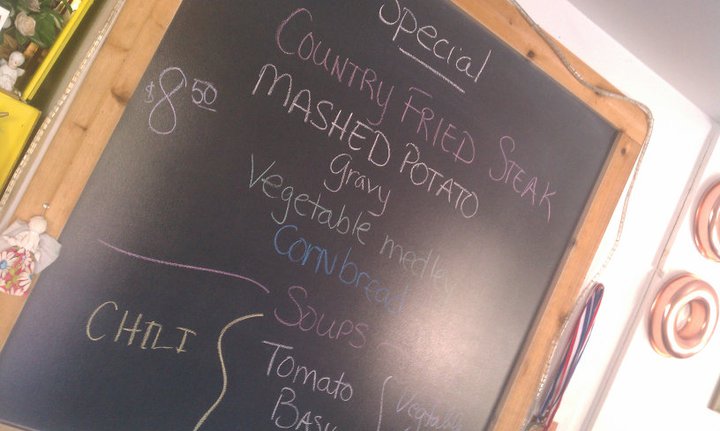 Special
COUNTRY FRIED STEAK
$8.50
MASHED POTATO
gravy
Vegetable
Cornbread
SOUPS
CHILI
Tomato
Vegetable